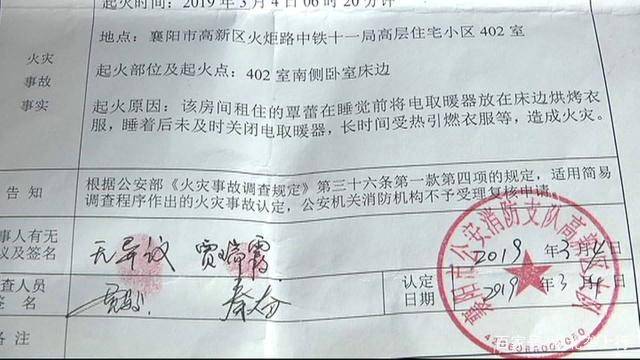 起火时间：2019年3月4日06时20分许
地点：襄阳市高新区火炬路中铁十一局高层住宅小区402室
火灾
事故
事实
起火部位及起火点：402室南侧卧室床边
起火原因：该房间租住的覃蕾在睡觉前将电取暖器放在床边烘烤衣
服，睡着后未及时关闭电取暖器，长时间受热引燃衣服等，造成火灾。
告知
根据公安部《火灾事故调查规定》第三十六条第一款第四项的规定，适用简易
调查程序作出的火灾事故认定，公安机关消防机构不予受理复核申请。
事人有无
议及签名
无异议
2019年3月4日
查人员
签名
认定
日期
2019年3月4日
备注
襄阳市公安消防支队高新区大队